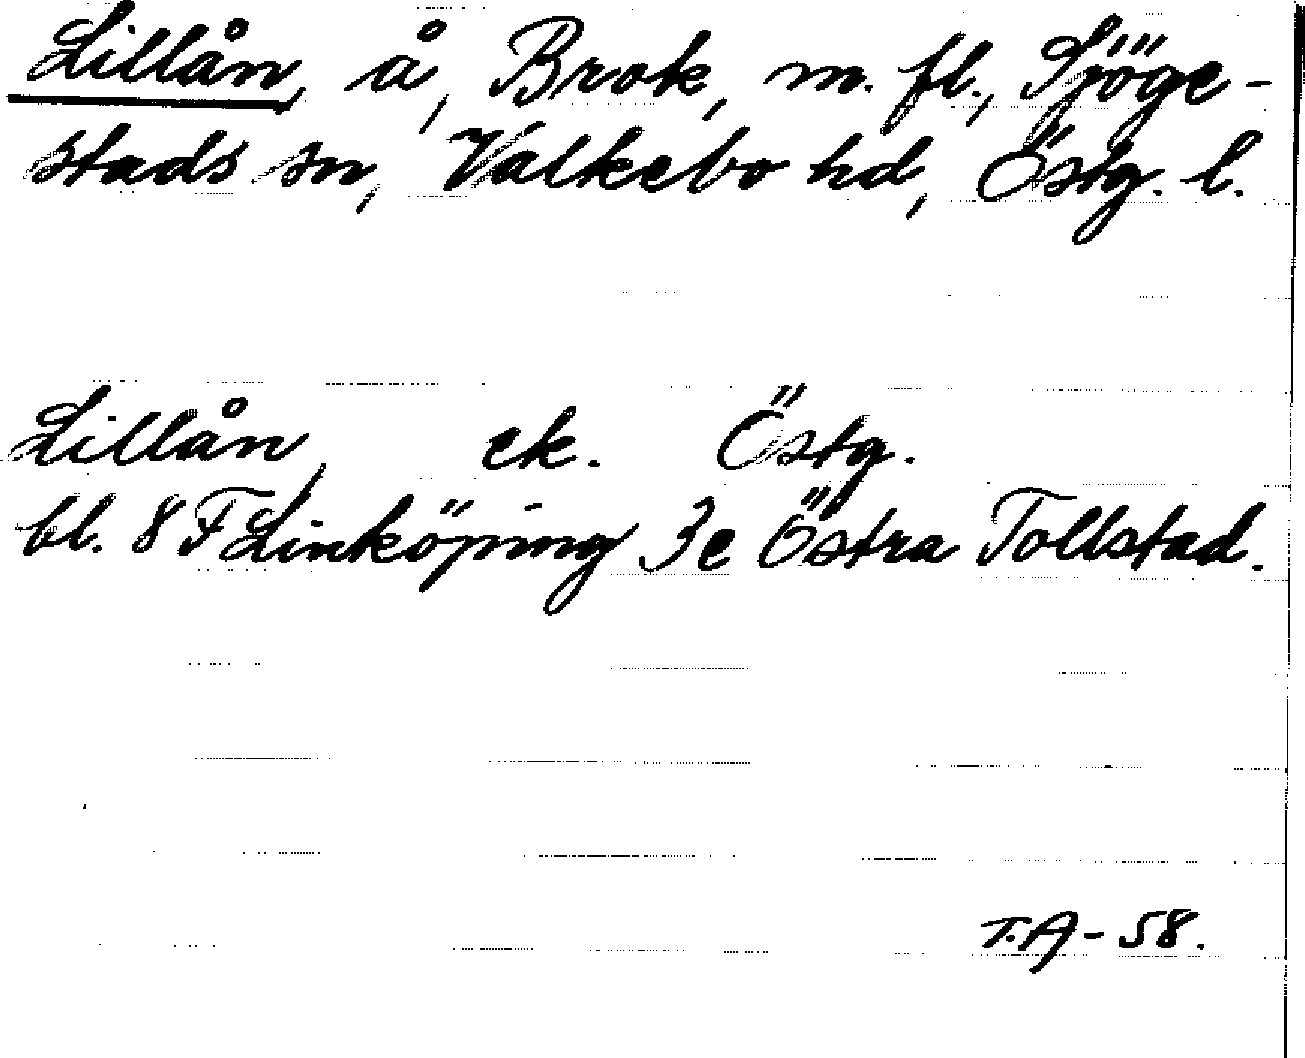 Lillån, å, Brok, m. fl., Sjöge-
stads sn, Valkebo hd, Östg. l.
Lillån, ek. Östg.
bl. 8 F Linköping 3e Östra Tollstad.
T.A-58.